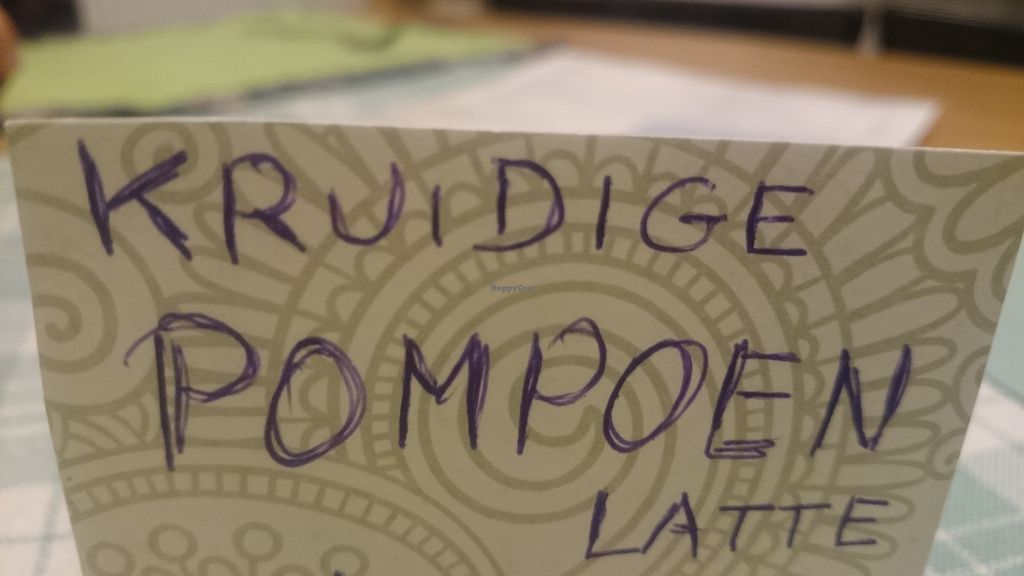 KRUIDIGE
HappyCow
POMPOEN
LATTE